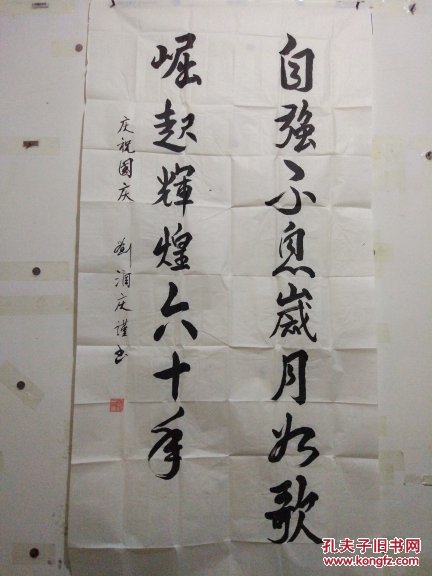 自强不息歲月如歌
崛起輝煌六十年
庆祝國庆 劉润庆謹书
孔夫子旧书网
KONGFZ.COM